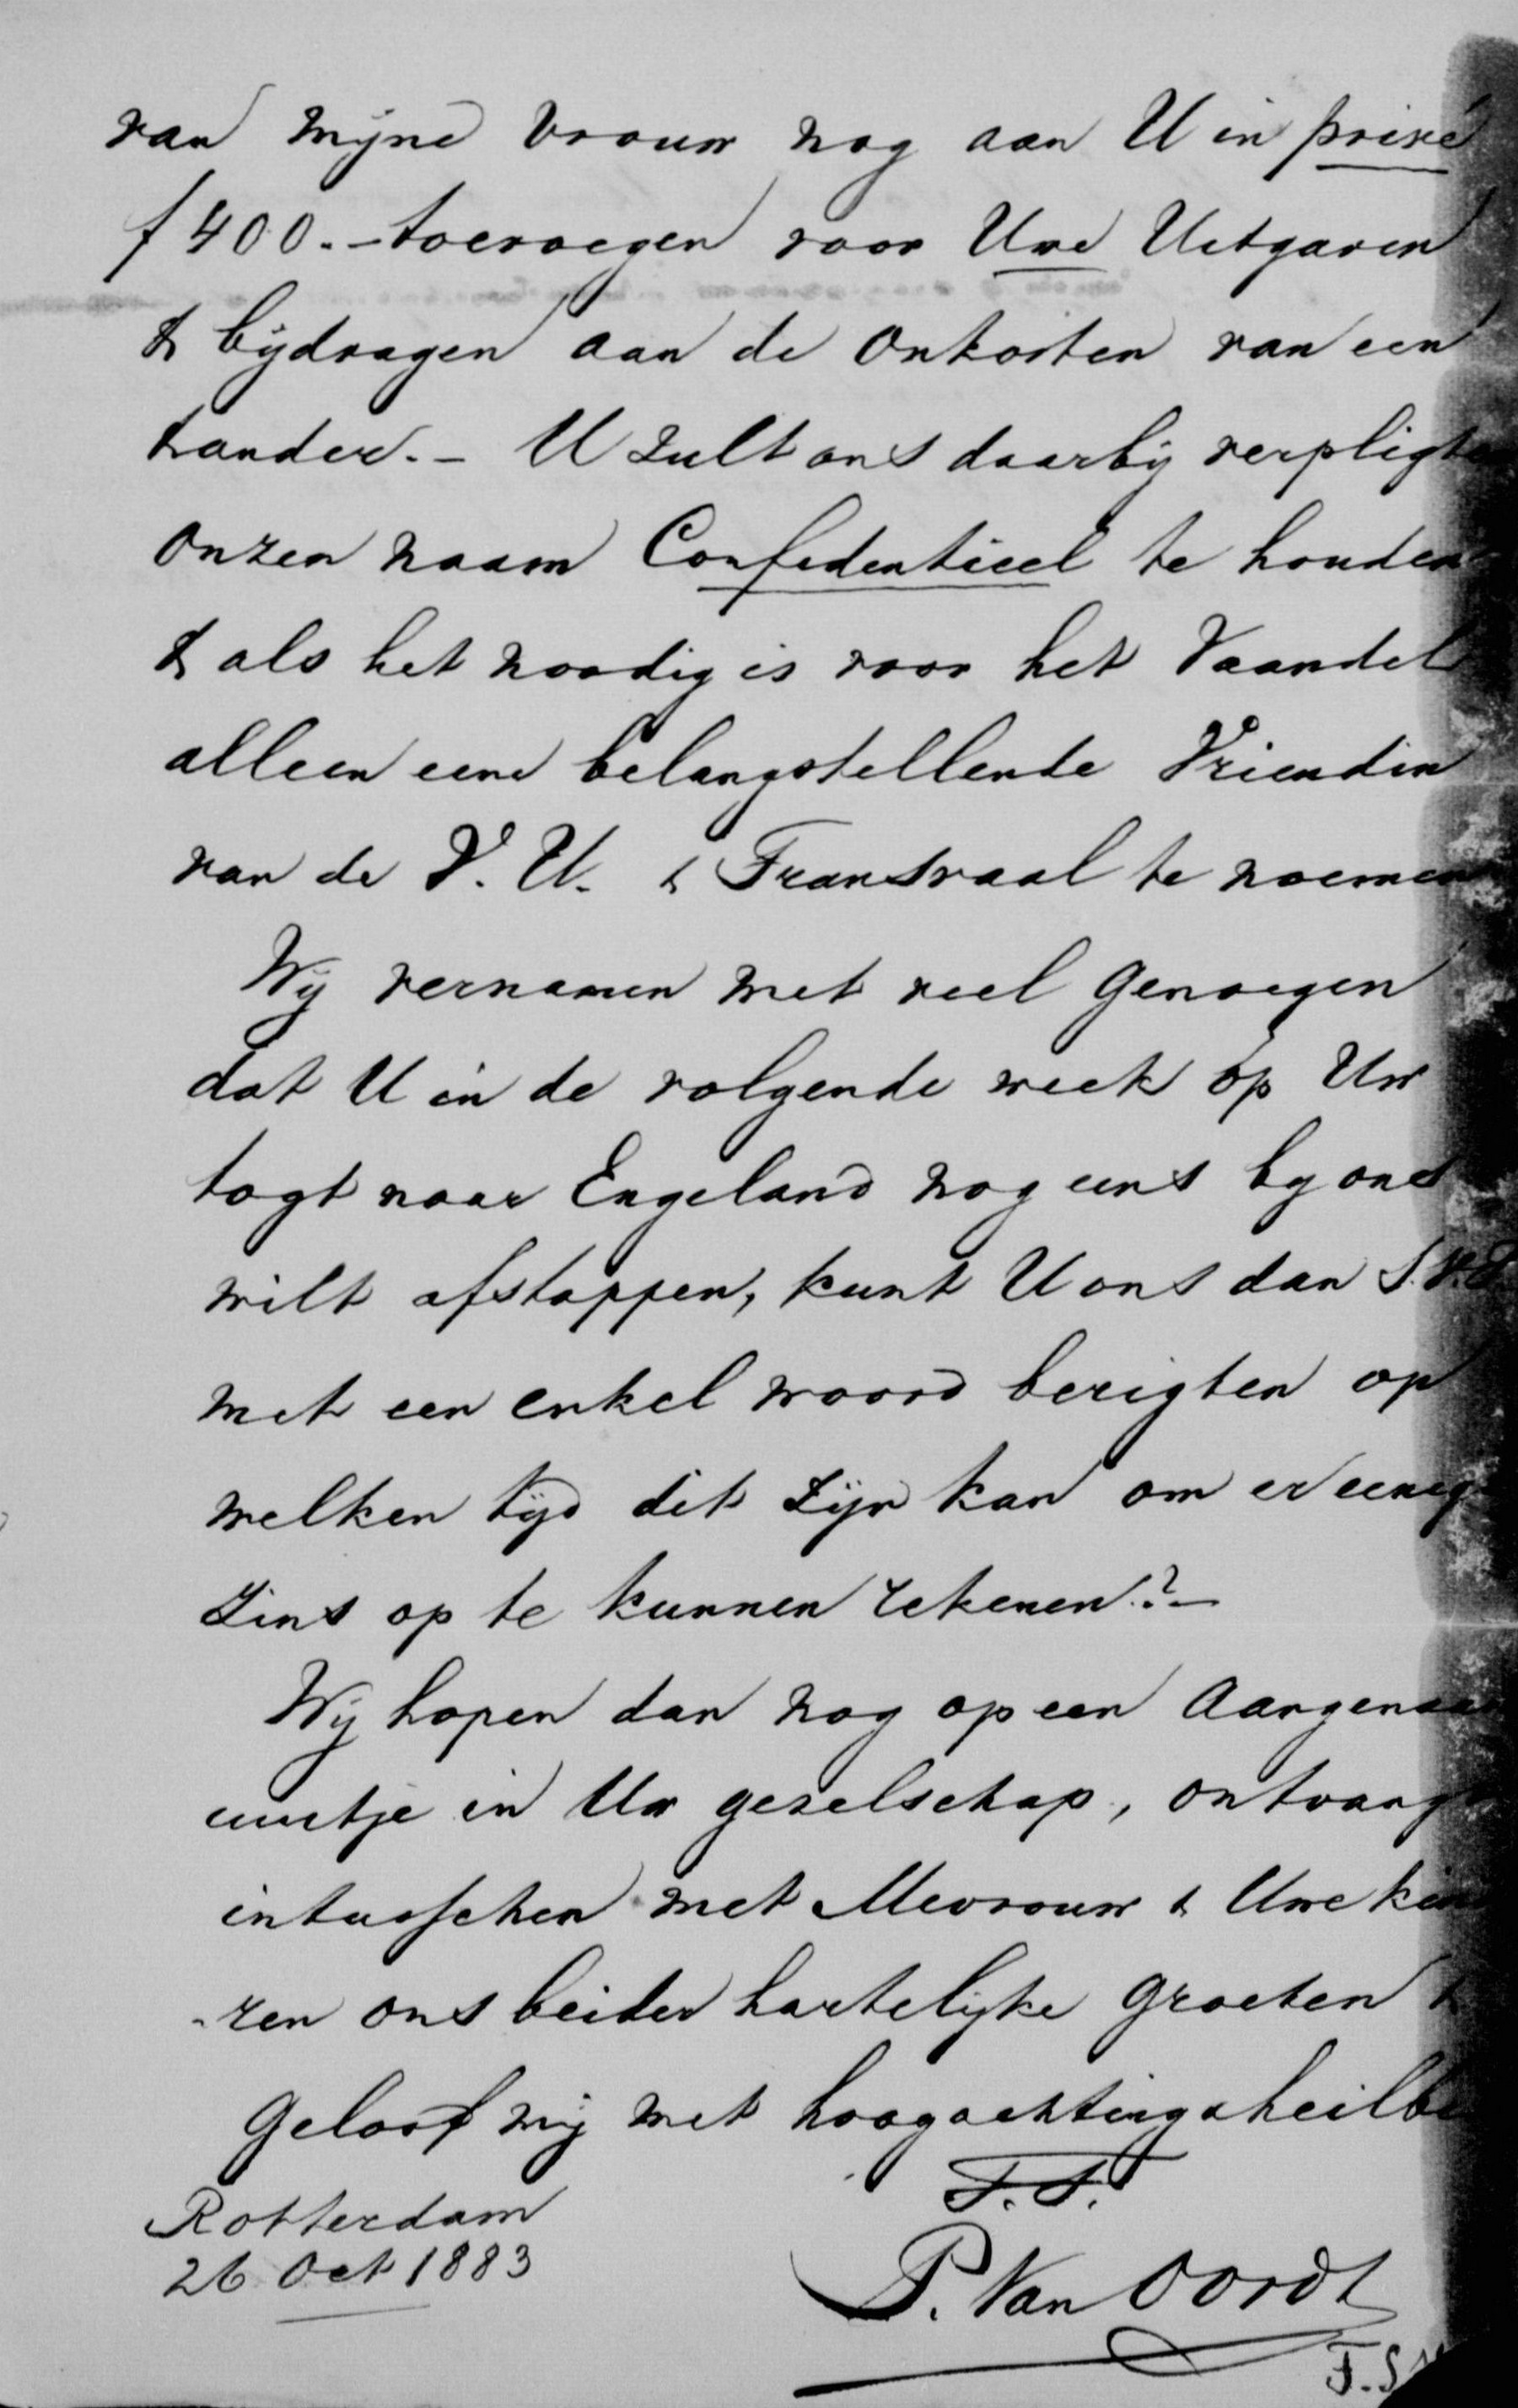 van mijne Vrouw nog aan U in privé
f 400.- toevoegen voor Uwe Uitgaven
& bijdragen aan de Onkosten van een
& ander. - U zult ons daarbij verpligten
onzen naam Confidentieel te houden
& als het noodig is voor het Vaandel
alleen eene belangstellende Vriendin
van de V. U. & Transvaal te noemen
Wij vernamen met veel genoegen
dat U in de volgende week op Uw
togt naar Engeland nog eens by ons
wilt afstappen, kunt U ons dan S.V.P
met een enkel woord berigten op
welken tijd dit zijn kan om er eenig
zins op te kunnen rekenen?-
Wij hopen dan nog op een Aangenaam
uurtje in Uw gezelschap, ontvang
intusschen met Mevrouw & Uwe kin
-ren ons beider hartelijke groeten &
geloof mij met hoogachting & heilbe
T.T.
Rotterdam
26 Oct 1883
P. Van Oordt